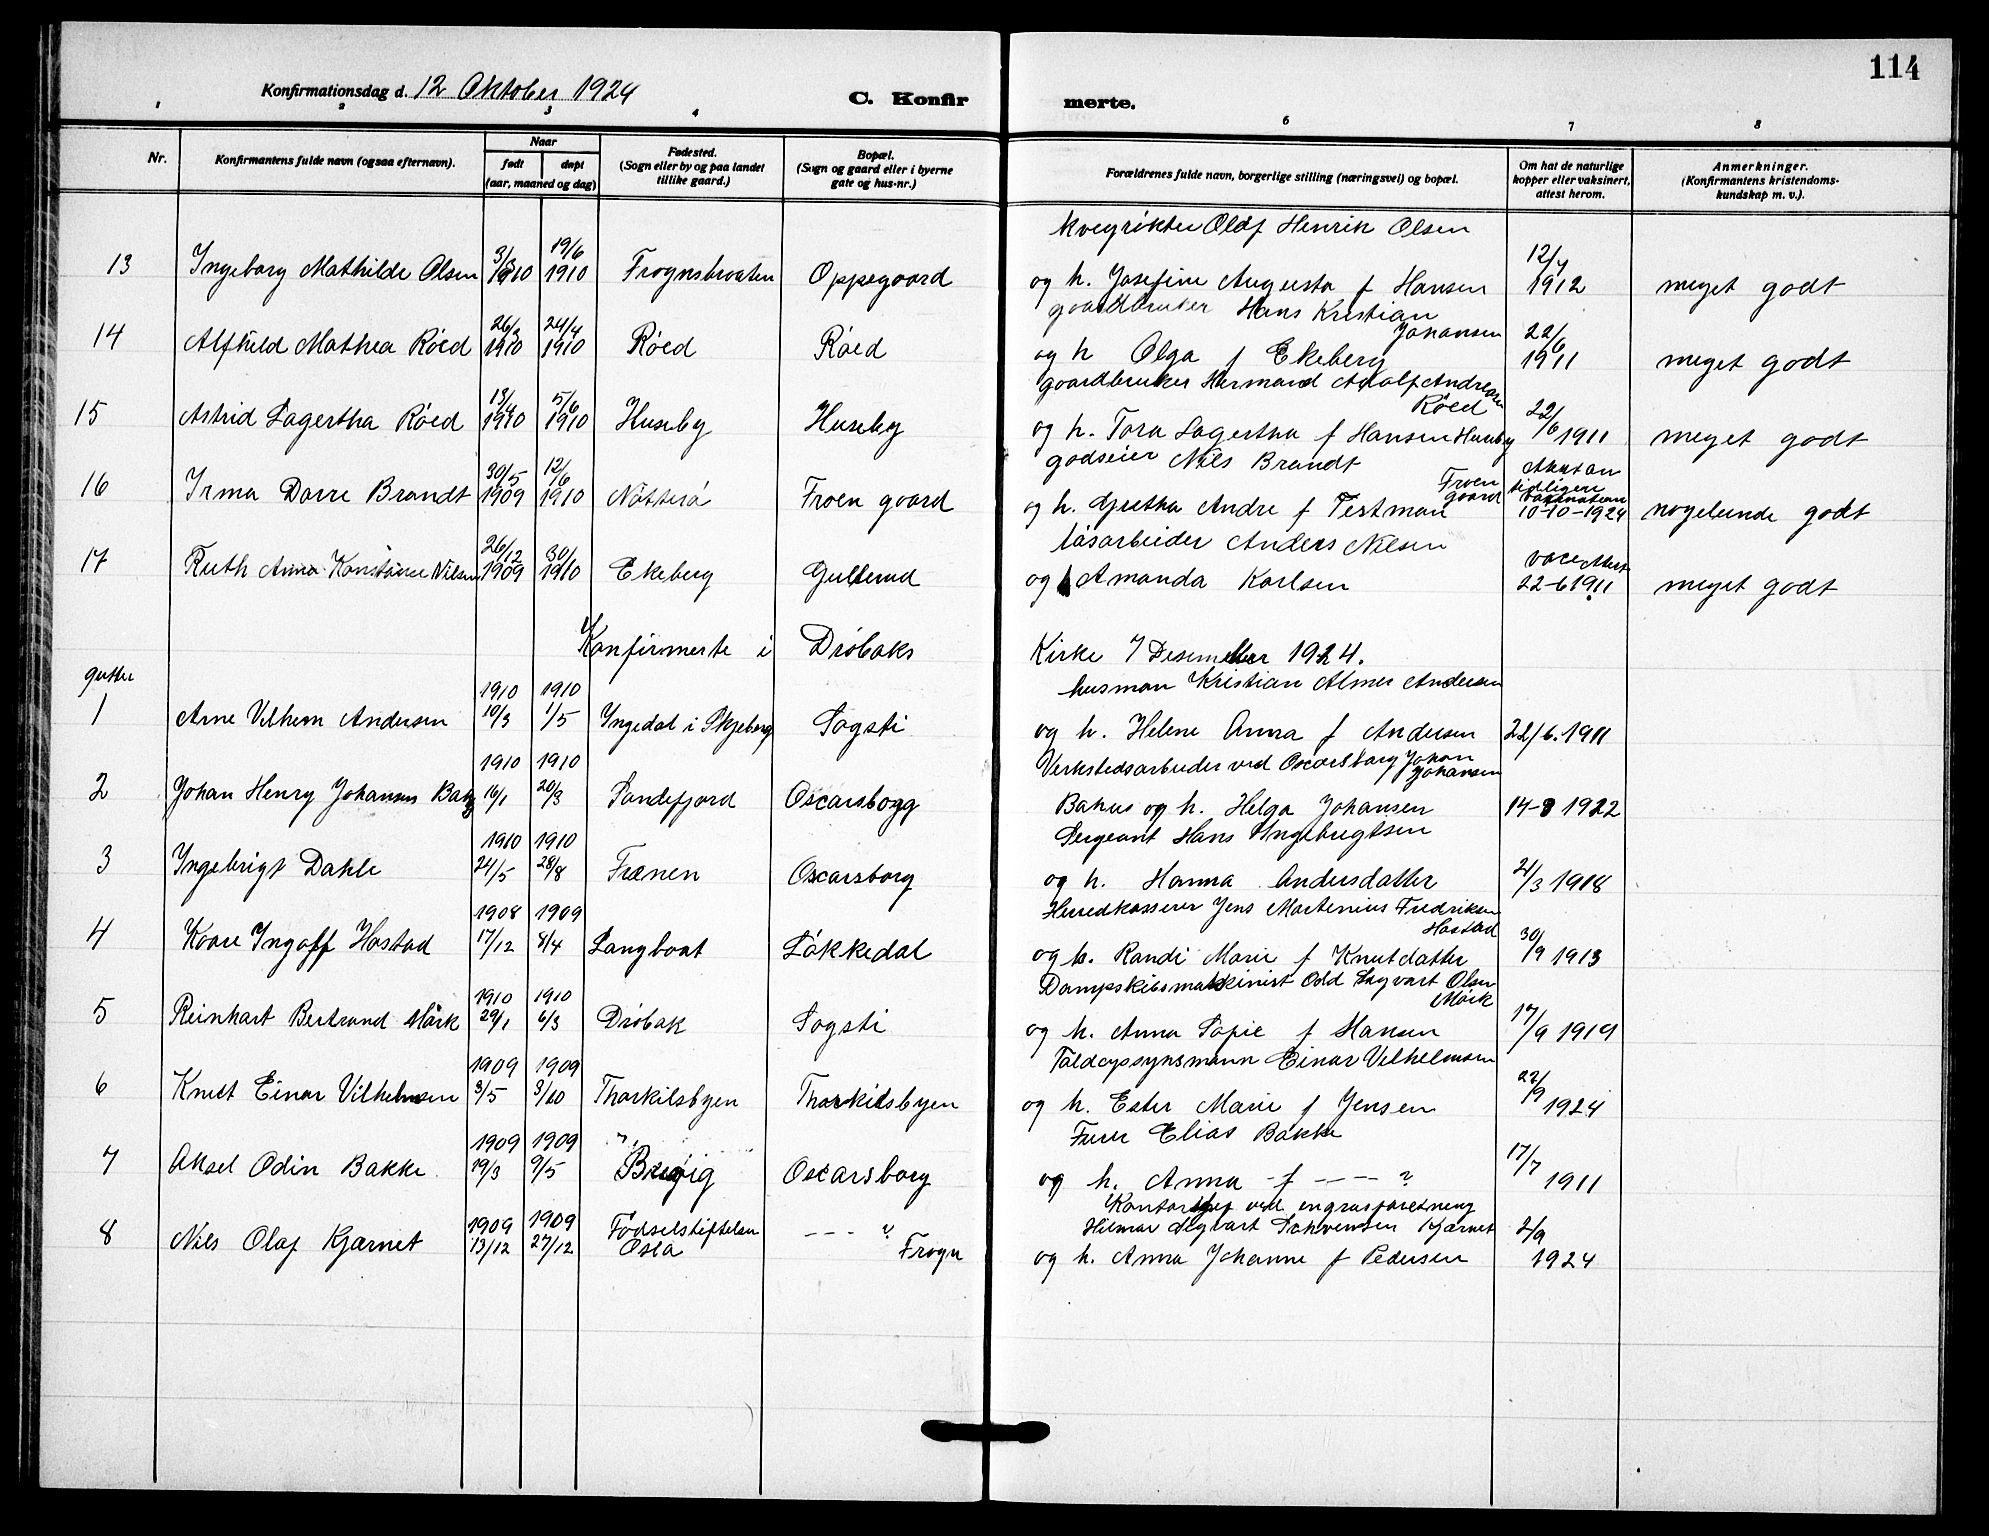 114
Konfirmationsdag d. 12 Oktober 1924
C. Konfir merte.
1 2 3 4 6 7 8
Nr.
Konfirmantens fulde navn (ogsaa efternavn).
Naar
født døpt
(aar, maaned og dag)
Fødested.
(Sogn eller by og paa landet
tillike gaard.)
Bopæl.
(Sogn og gaard eller i byerne
gate og hus-nr.)
Forældrenes fulde navn, borgerlige stilling (næringsvei) og bopæl.
Om hat de naturlige
kopper eller vaksinert,
attest herom.
Anmerkninger.
(Konfirmantens kristendoms-
kundskap m. v.).
kvegrökter Olaf Henrik Olsen
3/3 19/6 12/4
13 Ingeborg Mathilde Olsen 1910 1910 Oppegaard og h. Josefine Augusta f Hansen 1912 meget godt
gaardbruker Hans Kristian
Johansen
24/4 22/6
14 Alfhild Mathea Röed 1910 1910 Röed Röed og h Olga f Ekeberg 1911 meget godt
gaardbruker Hermand Adolf Andresen
Röed
13/4 5/6
15 Astrid Lagertha Röed 1910 1910 Huseby Huseby og h. Tora Lagertha f Hansen Huseby 22/6 1911 meget godt
godseier Nils Brandt
Froen
gaard
30/5 12/6
16 Irma Dorre Brandt 1909 1910 Nötterö Froen gaard og h. Gretha Andre f Testman
tidligere
vaksination
10-10-1924 nogelunde godt
Anders Nilsen
26/12 30/1
17 Ruth Anna Konstance Nilsen 1909 1910 Ekeberg Gulterud og Amanda Karlsen
vacc Attest
22-6 1911 meget godt
Konfirmerte i Dröbaks Kirke 7 Desember 1924.
gutter
husman Kristian Almer Andersen
1910 1910
1 Arne Vilhem Andersen 10/3 1/5 Ingedal i Skjeberg Sogsti og h. Helene Anna f Andersen 22/6. 1911
Verkstedsarbeider ved Oscarsborg Johan
Johansen
1910 1910
2 Johan Henry Johansen 16/1 20/3 Sandefjord Oscarsborg Bakus og h. Helga Johansen 14-8 1922
Sergeant Hans Ingebrigtsen
1910 1910
3 Ingebrigt Dahle 24/5 28/8 Frænen Oscarsborg og h. Hanna Andersdatter 21/3 1918
Herredkasserer Jens Martenius Fredriksen
Hostad
1908 1909
4 Kaare Ingolf Hostad 17/12 8/4 Langboat Lökkedal og h. Randi Marie f Knutdatter 30/9 1913
Dampskibsmaskinist Odd Sigvart Olsen
Mörk
1910 1910
5 Reinhart Bertrand Mörk 29/1 6/3 Dröbak Sogsti og h. Anna Sofie f Hansen 17/9 1919
Toldopsynsmann Einar Vilhelmsen
1909 1909
6 Knut Einar Vilhelmsen 3/5 3/10 Thorkilsbyen Thorkilsbyen og h. Ester Marie f Jensen 22/9 1924
Furer Elias Bakke
1909 1909
7 Aksel Odin Bakke 19/3 9/5 Oscarsborg og h. Anna - f - - - - ? 17/7 1911
Kontorchef ved engrosforetning
Hilmar Sigvart Schvensen Kjærnet
1909 1909 Födselstiftelsen
8 Nils Olaf Kjærnet 13/12 27/12 Oslo - - - " Frogn og h. Anna Johanne f Pedersen 2/9 1924